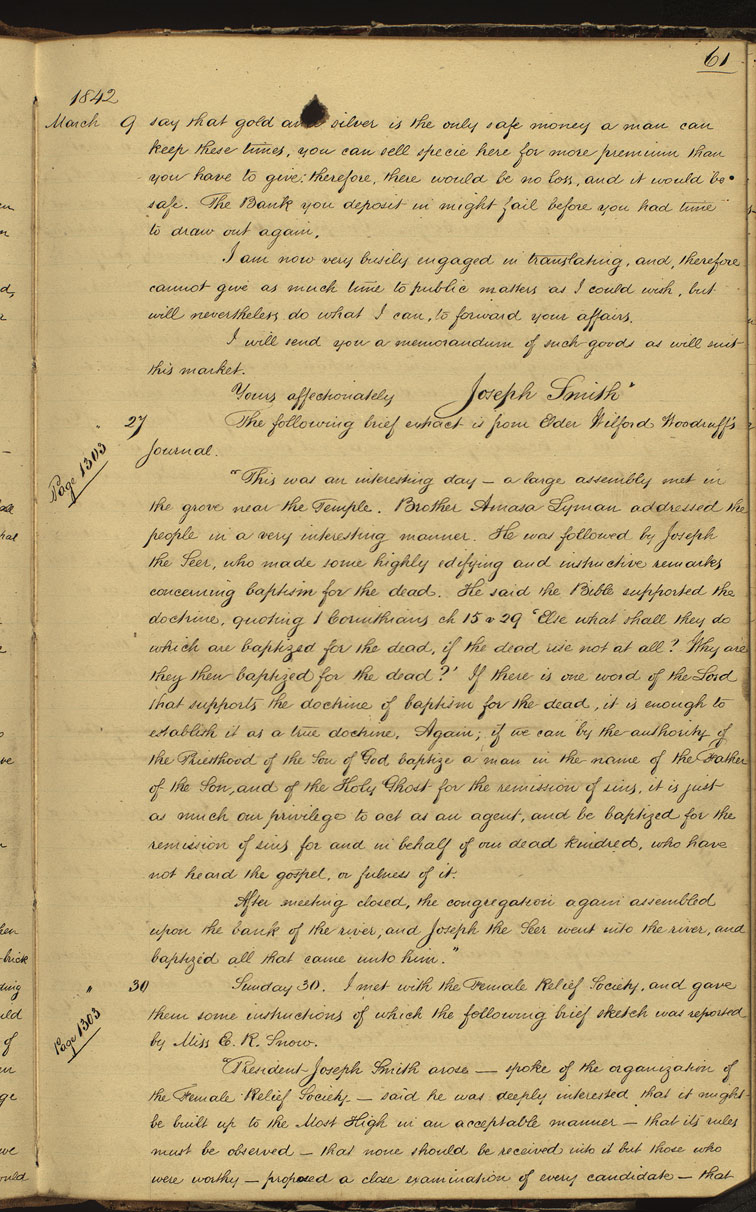 61
1842
March 9 say that gold and silver is the only safe money a man can
keep these times, you can sell specie here for more premium than
you have to give: therefore, there would be no loss, and it would be
safe. The Bank you deposit in might fail before you had time
to draw out again.
I am now very busily engaged in translating, and, therefore
cannot give as much time to public matters as I could wish, but
will nevertheless do what I can, to forward your affairs.
I will send you a memorandum of such goods as will suit
this market.
Yours affectionately Joseph Smith"
" 27 The following brief extract is from Elder Wilford Woodruff's
Page 1303
Journal.
"This was an interesting day — a large assembly met in
the grove near the Temple. Brother Amasa Lyman addressed the
people in a very interesting manner. He was followed by Joseph
the Seer, who made some highly edifying and instructive remarks
concerning baptism for the dead. He said the Bible supported the
doctrine, quoting 1 Corinthians ch 15 v 29 'Else what shall they do
which are baptized for the dead, if the dead rise not at all? Why are
they then baptized for the dead?' If there is one word of the Lord
that supports the doctrine of baptism for the dead, it is enough to
establish it as a true doctrine. Again; if we can by the authority of
the Priesthood of the Son of God baptize a man in the name of the Father
of the Son, and of the Holy Ghost for the remission of sins, it is just
as much our privilege to act as an agent, and be baptized for the
remission of sins for and in behalf of our dead kindred, who have
not heard the gospel, or fulness of it.
After meeting closed, the congregation again assembled
upon the bank of the river, and Joseph the Seer went into the river, and
baptized all that came unto him."
" 30 Sunday 30. I met with the Female Relief Society, and gave
Page 1303
them some instructions of which the following brief sketch was reported
by Miss E. R. Snow.
"President Joseph Smith arose — spoke of the organization of
the Female Relief Society — said he was deeply interested that it might
be built up to the Most High in an acceptable manner — that its rules
must be observed — that none should be received into it but those who
were worthy — proposed a close examination of every candidate — that